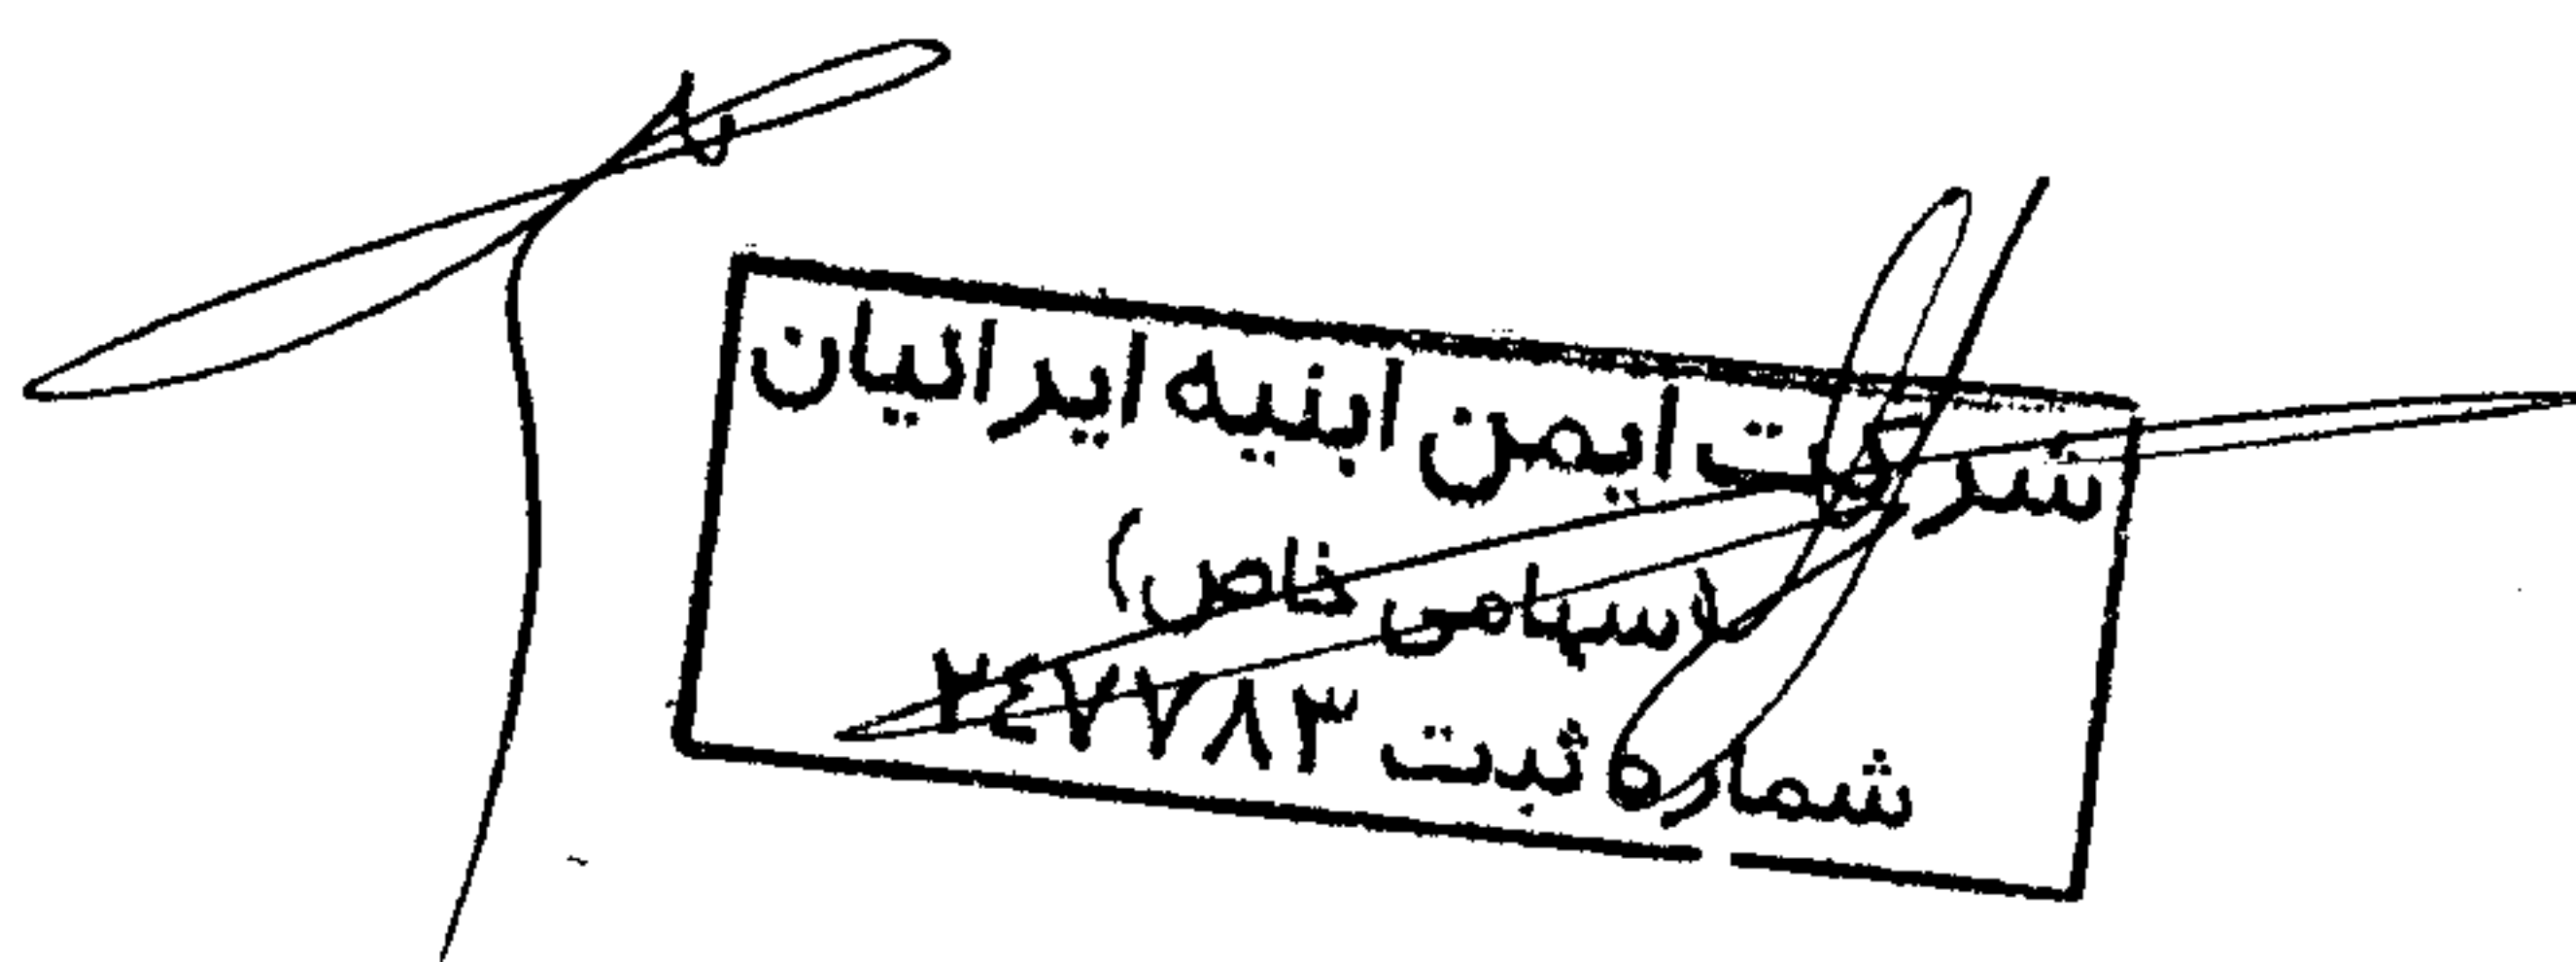 شرکت ایمن ابنیه ایرانیان
(سهامی خاص)
شماره ثبت ۲٤۷۷۸۳